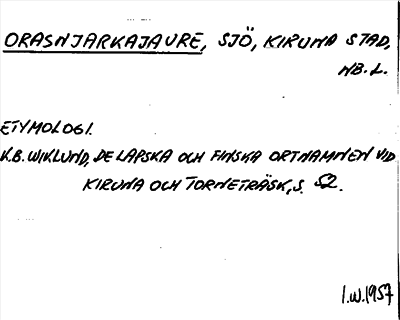 ORASNJARKAJAURE, SJÖ, KIRUNA STAD,
NB.L.
ETYMOLOGI.
K.B. WIKLUND, DE LAPSKA OCH FINSKA ORTNAMNEN VID
KIRUNA OCH TORNETRÄSK, S. 52.
I.W.1957